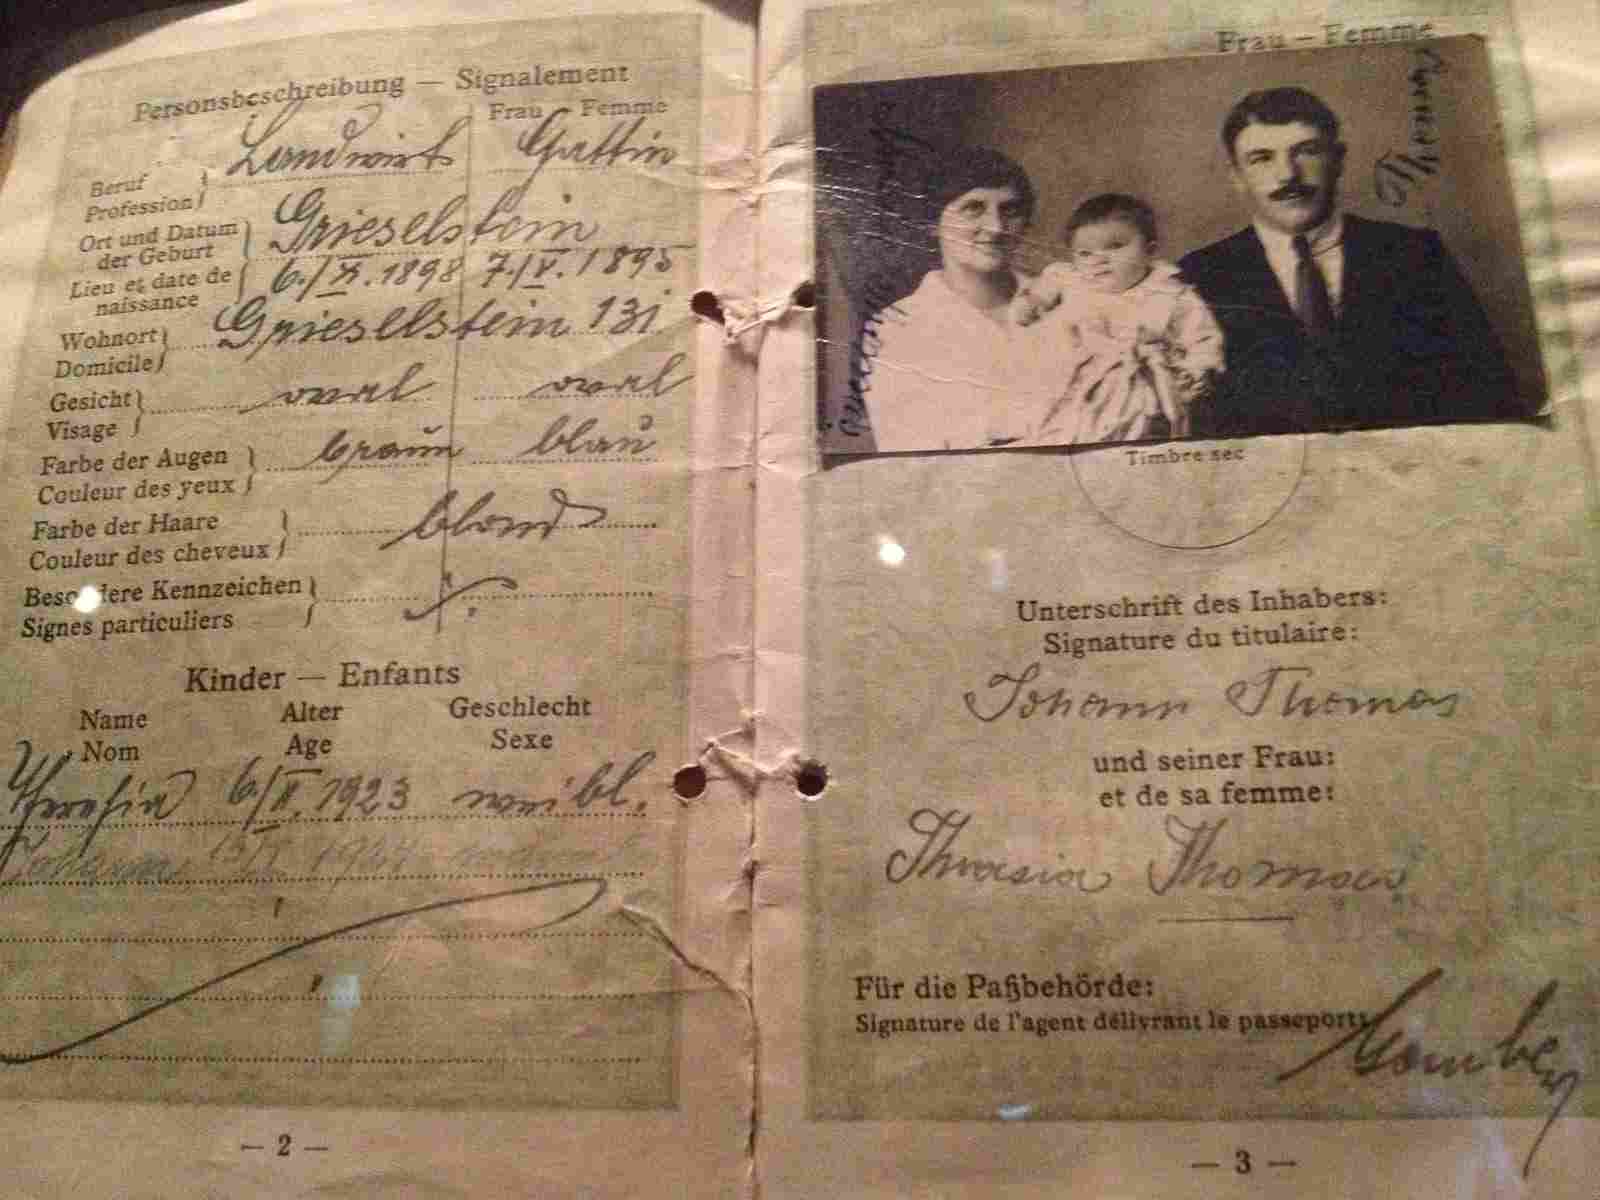 Personsbeschreibung — Signalement
Frau Femme
Landwirt Gattin
Beruf
Profession
Ort und Datum
der Geburt
Grieselstein
Lieu et date de
naissance
6./XI.1898 7./V.1895
Wohnort
Domicile
Grieselstein 131
Gesicht
Visage
oval oval
Farbe der Augen
Couleur des yeux
braun blau
Farbe der Haare
Couleur des cheveux
blond
Besondere Kennzeichen
Signes particuliers
Kinder — Enfants
Name Alter Geschlecht
Nom Age Sexe
Theresia 6/II.1923 weibl.
Johann
— 2 —
Frau — Femme
Thomas
Timbre sec
Unterschrift des Inhabers:
Signature du titulaire:
Johann Thomas
und seiner Frau:
et de sa femme:
Theresia Thomas
Für die Paßbehörde:
Signature de l'agent délivrant le passeport:
— 3 —